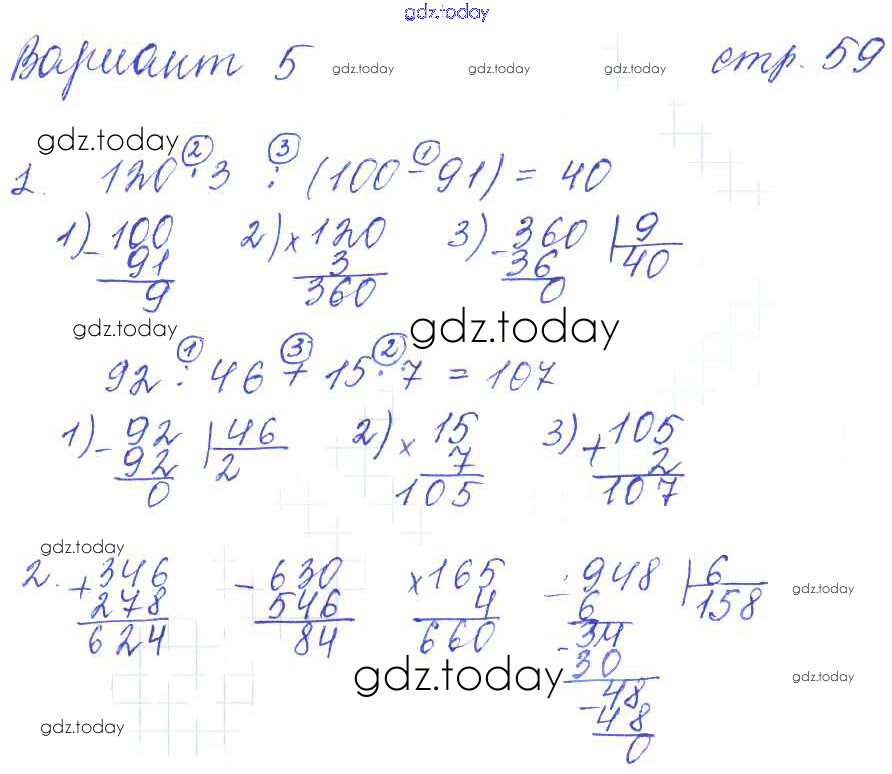 gdz.today
Вариант 5 gdz.today gdz.today gdz.today стр. 59
gdz.today
2 3 1
1. 120 · 3 : (100 - 91) = 40
1) - 100 2) × 120 3) - 360 | 9
91 3 36 40
9 360 0
gdz.today gdz.today
1 3 2
92 : 46 + 15 · 7 = 107
1) - 92 | 46 2) × 15 3) + 105
92 2 7 2
0 105 107
gdz.today
2. + 346 - 630 × 165 - 948 | 6 gdz.today
278 546 4 6 158
624 84 660 - 34
gdz.today 30 gdz.today
- 48
48
gdz.today 0